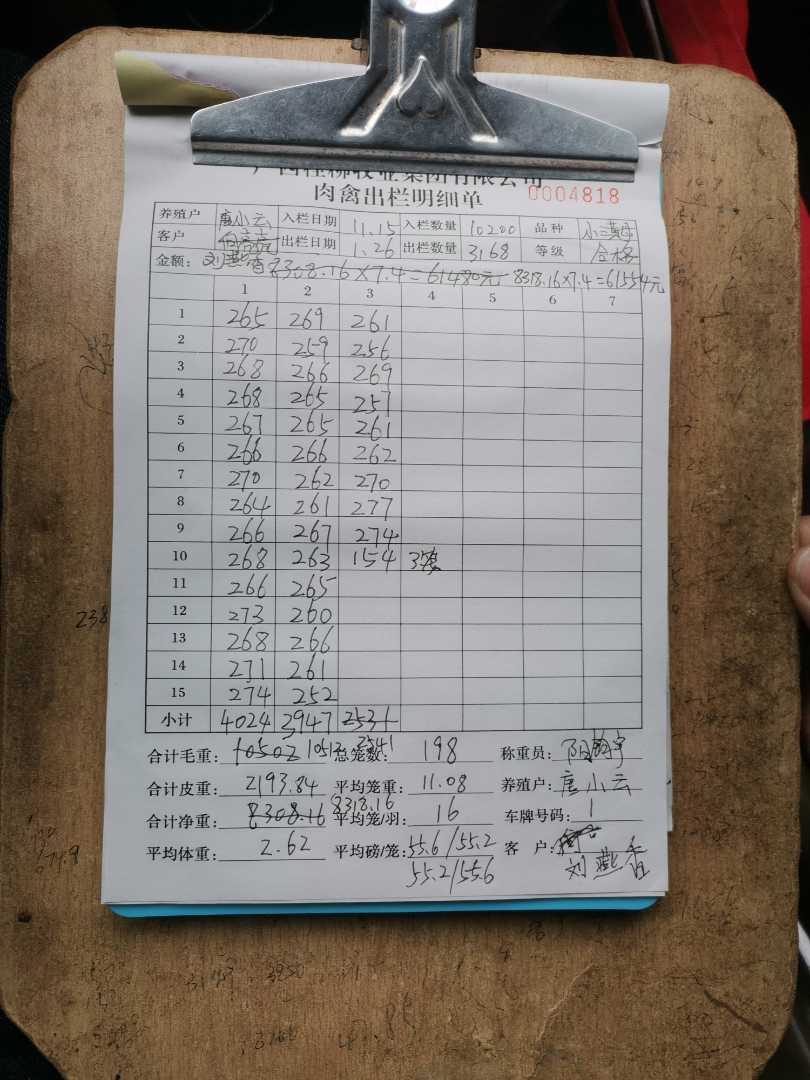 肉禽出栏明细单 0004818
养殖户 唐小云 入栏日期 11.15 入栏数量 10200 品种
客户 出栏日期 1.26 出栏数量 3168 等级 合格
金额: 刘燕香 8308.16×7.4=61480元 8318.16×7.4=61554元
1 2 3 4 5 6 7
1 265 269 261
2 270 259 256
3 268 266 269
4 268 265 257
5 267 265 261
6 266 266 262
7 270 262 270
8 264 261 277
9 266 267 274
10 268 263 154
11 266 265
12 273 260
13 268 266
14 271 261
15 274 252
小计 4024 3947 2531
2541
合计毛重: 10502 10512 总笼数: 198 称重员:
合计皮重: 2193.84 平均笼重: 11.08 养殖户: 唐小云
合计净重: 8308.16 8318.16 平均笼/羽: 16 车牌号码: 1
平均体重: 2.62 平均磅/笼: 55.6/55.2 客 户:
55.2/55.6 刘燕香